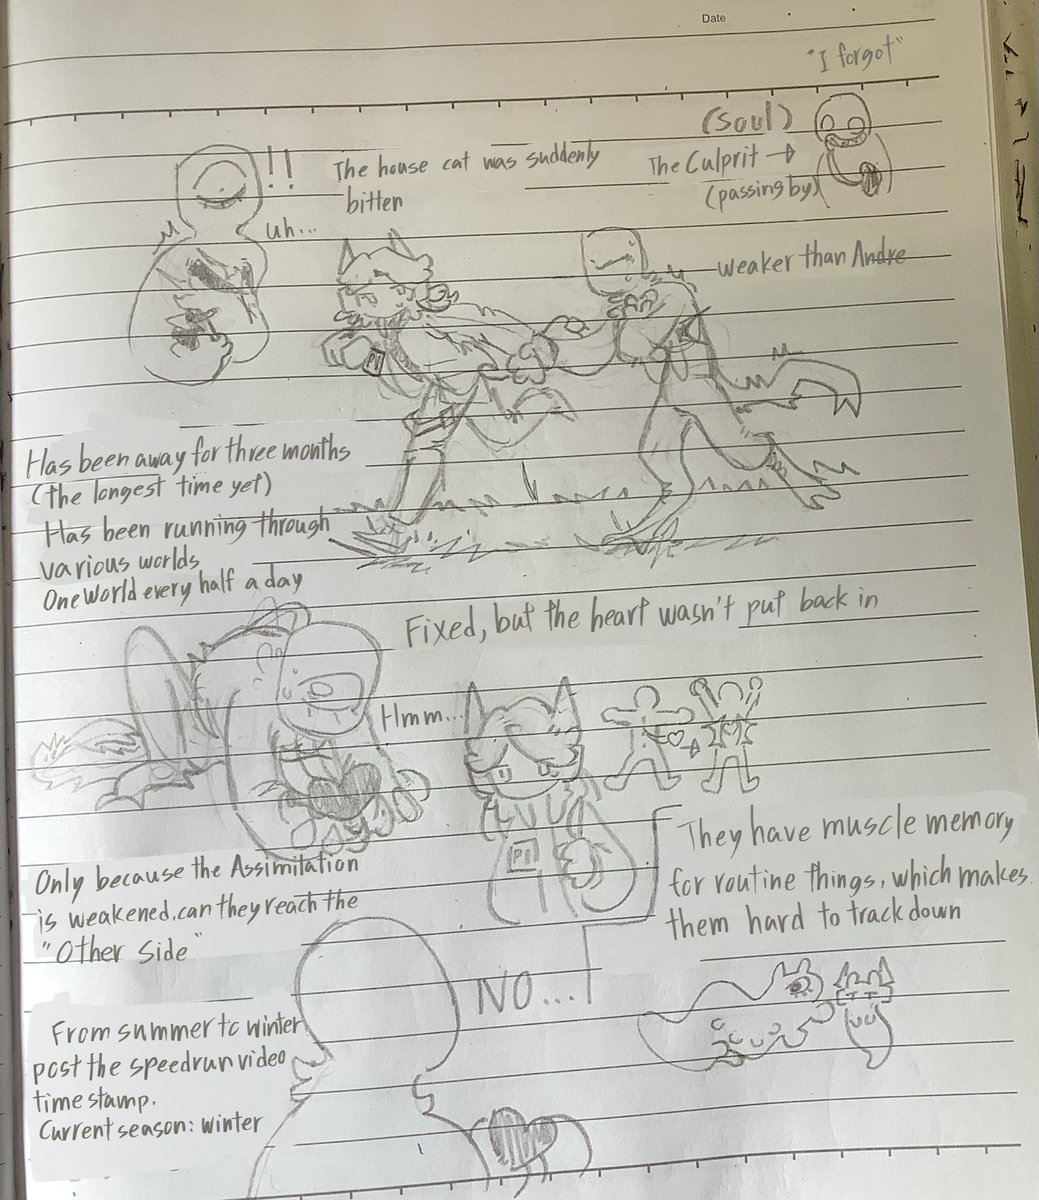 Date
"I forgot"
(Soul)
The Culprit →
(passing by)
!!
uh...
The house cat was suddenly
bitten
weaker than Andre
P1
Has been away for three months
(the longest time yet)
Has been running through
various worlds
One world every half a day
Fixed, but the heart wasn't put back in
Hmm...
P1
Only because the Assimilation
is weakened, can they reach the
"Other side"
They have muscle memory
for routine things, which makes
them hard to track down
NO...
From summer to winter
post the speedrun video
time stamp.
Current season: winter